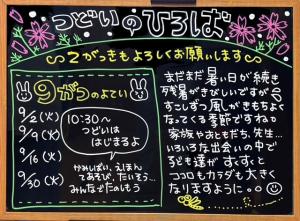 つどいのひろば
2がっきもよろしくお願いします
9がつのよてい
9/2(火)
9/9(火)
9/16(火)
9/30(火)
10:30〜
つどいは
はじまるよ
かみしばい、えほん
てあそび、たいそう…
みんなでたのしもう
まだまだ暑い日が続き
残暑がきびしいですが
すこしずつ風がきもちよく
なってくる季節ですね
家族やおともだち、先生…
いろいろな出会いの中で
子ども達が すくすくと
ココロもカラダも大きく
なりますように